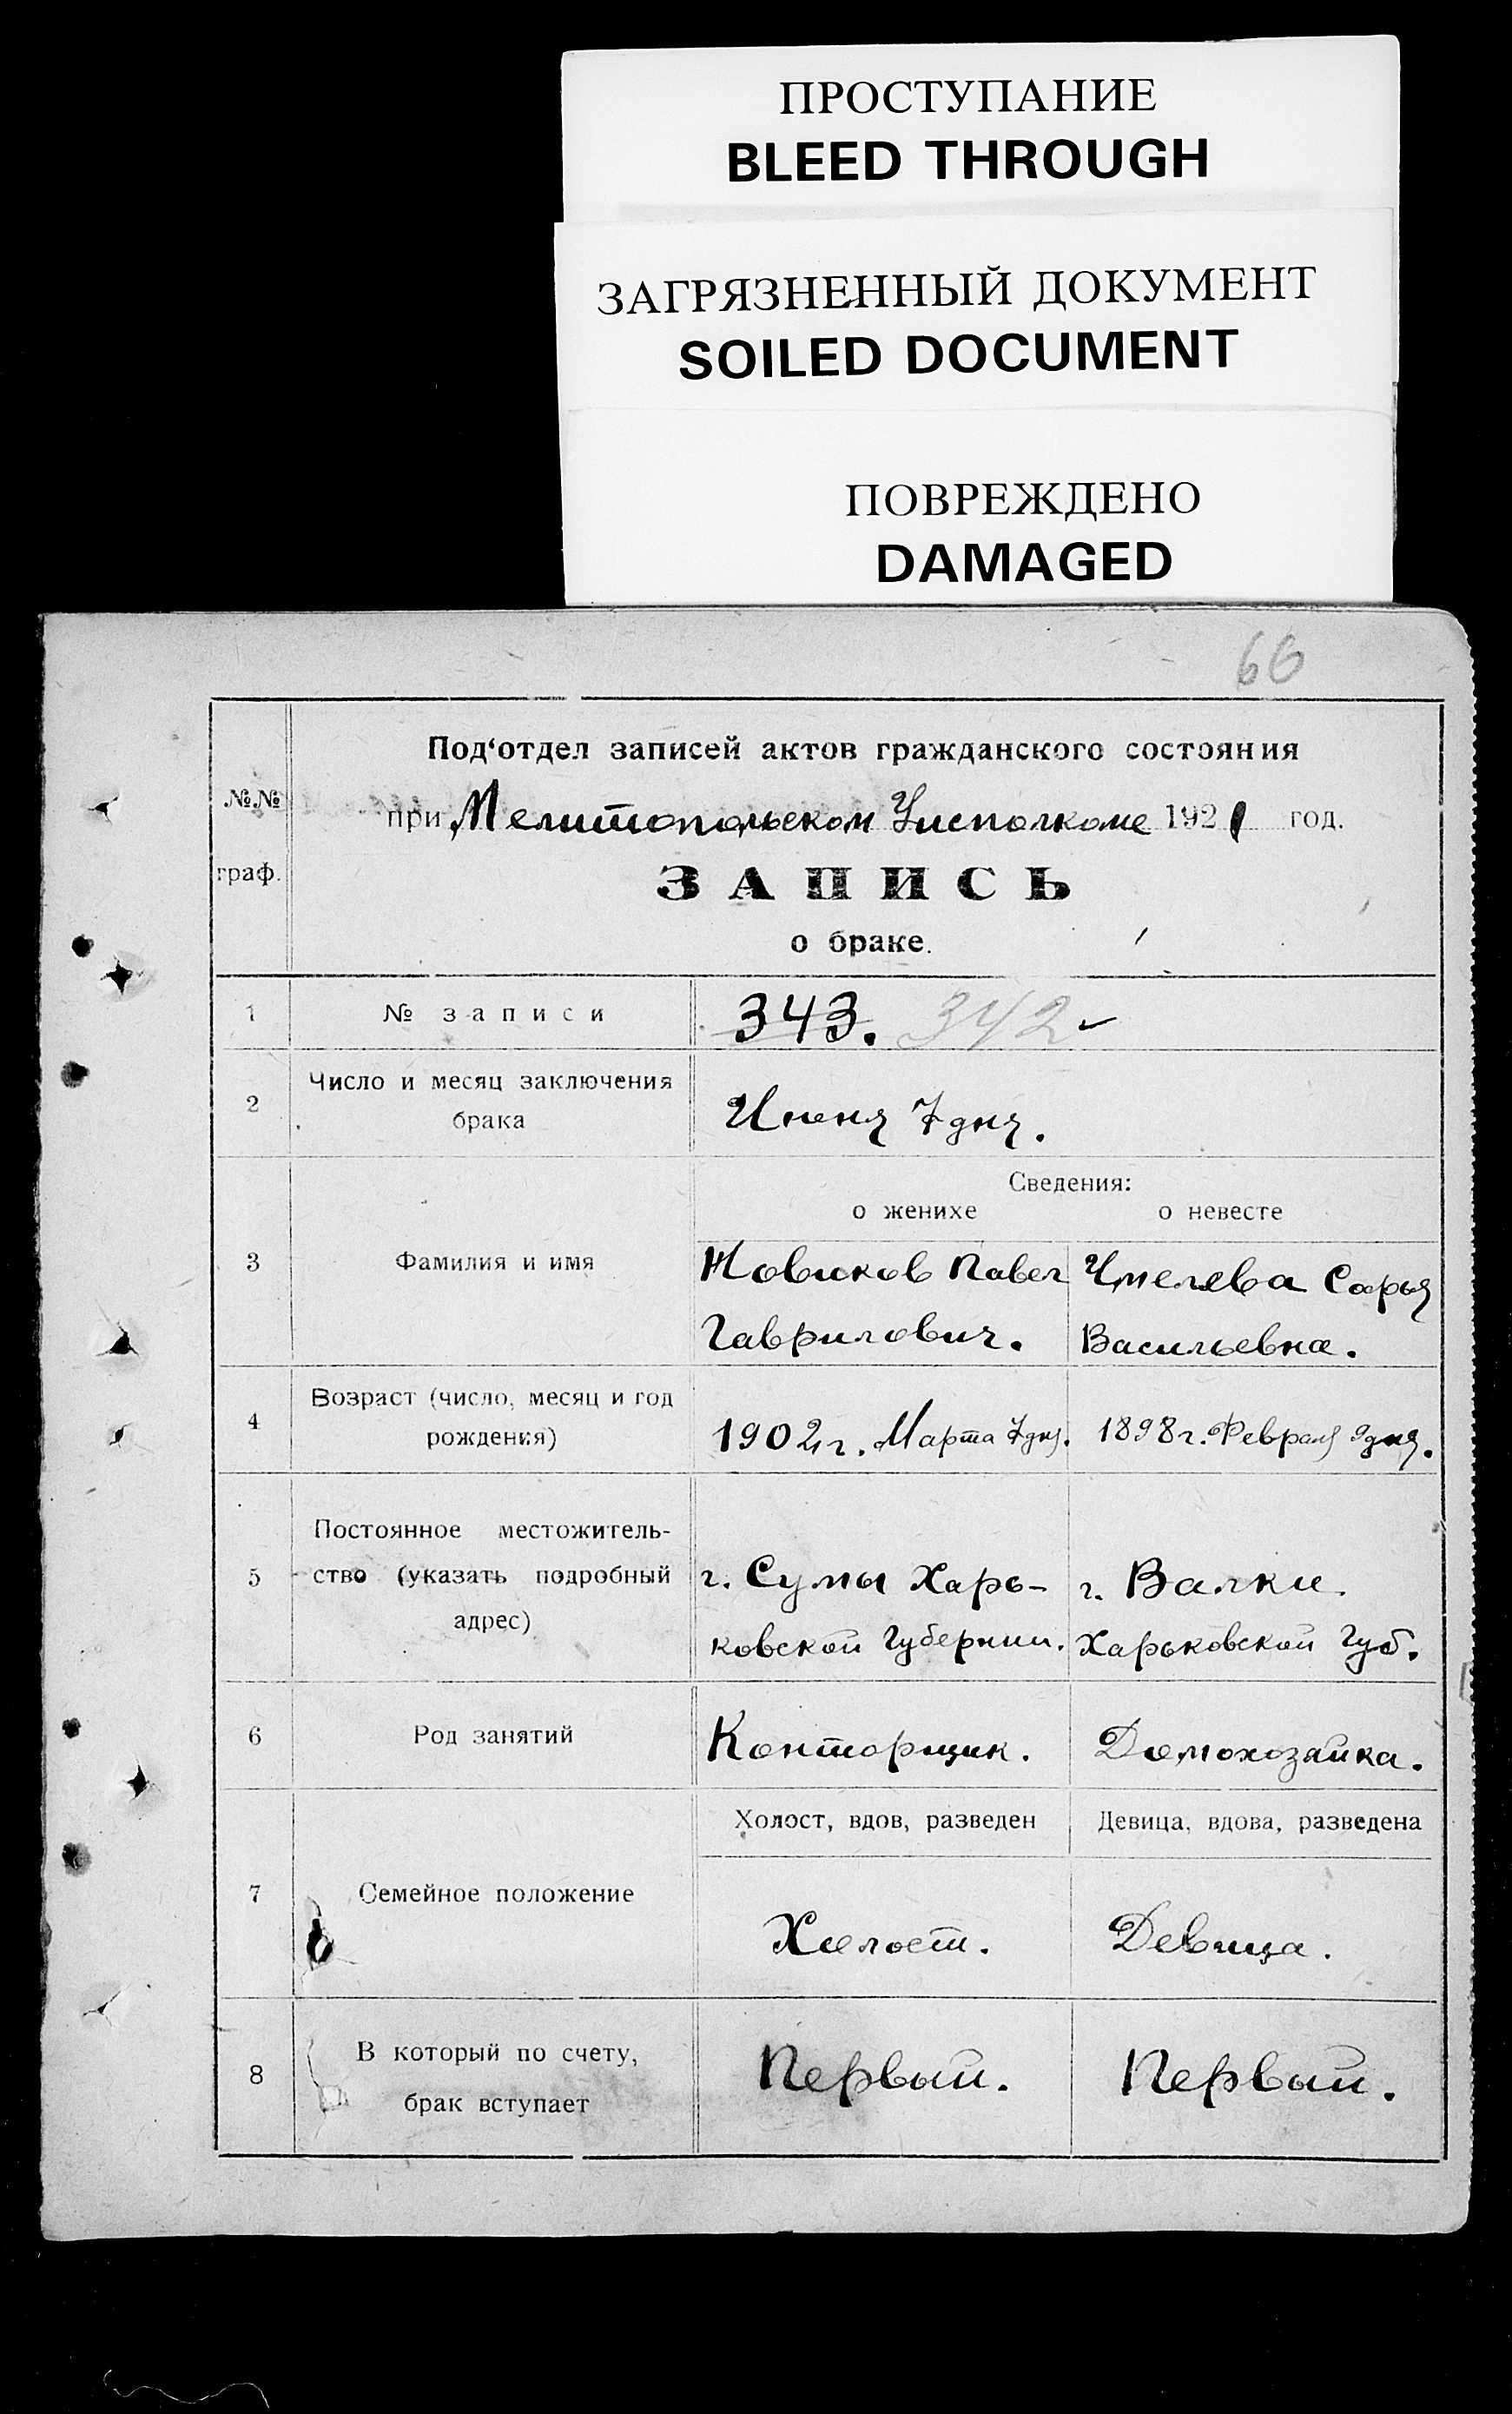 ПРОСТУПАНИЕ
BLEED THROUGH
ЗАГРЯЗНЕННЫЙ ДОКУМЕНТ
SOILED DOCUMENT
ПОВРЕЖДЕНО
DAMAGED
66
№№ граф.
Под‘отдел записей актов гражданского состояния
при Мелитопольском Уисполкоме 1921 год.
ЗАПИСЬ
о браке.
1 № записи 343. 342
2 Число и месяц заключения
брака
Июня 7 дня.
Сведения:
о женихе о невесте
3 Фамилия и имя
Новиков Павел
Гаврилович.
Софья
Васильевна.
4 Возраст (число, месяц и год
рождения)
1902 г. Марта 7 дня.
1898 г. Февраля 9 дня.
5 Постоянное местожитель-
ство (указать подробный
адрес)
г. Сумы Харь-
ковской Губернии.
г. Валки.
Харьковской Губ.
6 Род занятий
Конторщик.
Домохозайка.
Холост, вдов, разведен
Девица, вдова, разведена
7 Семейное положение
Холост.
Девица.
8 В который по счету,
брак вступает
Первый.
Первый.